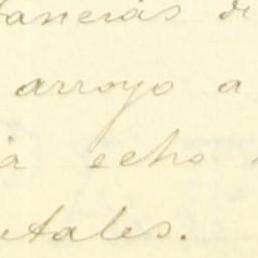 tancias de
arroyo a
ia echo
etales.